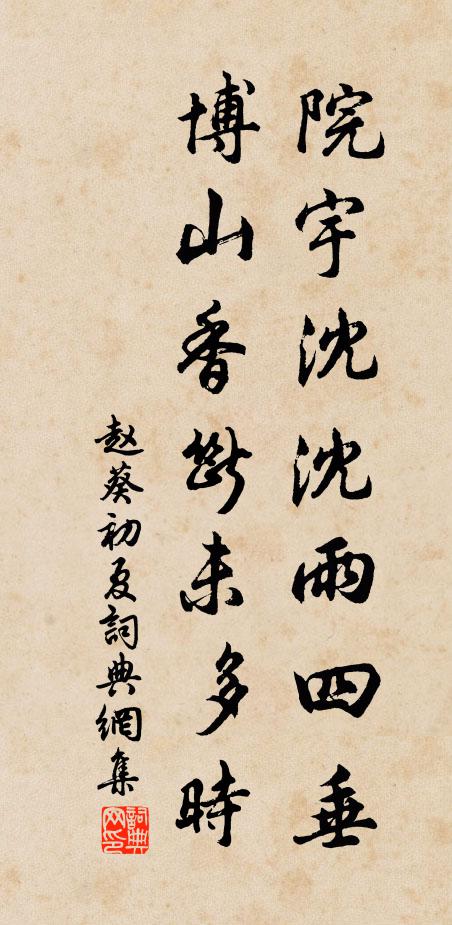 院宇沈沈雨四垂
博山香斷未多時
趙葵初夏詞典網集
詞典
网印